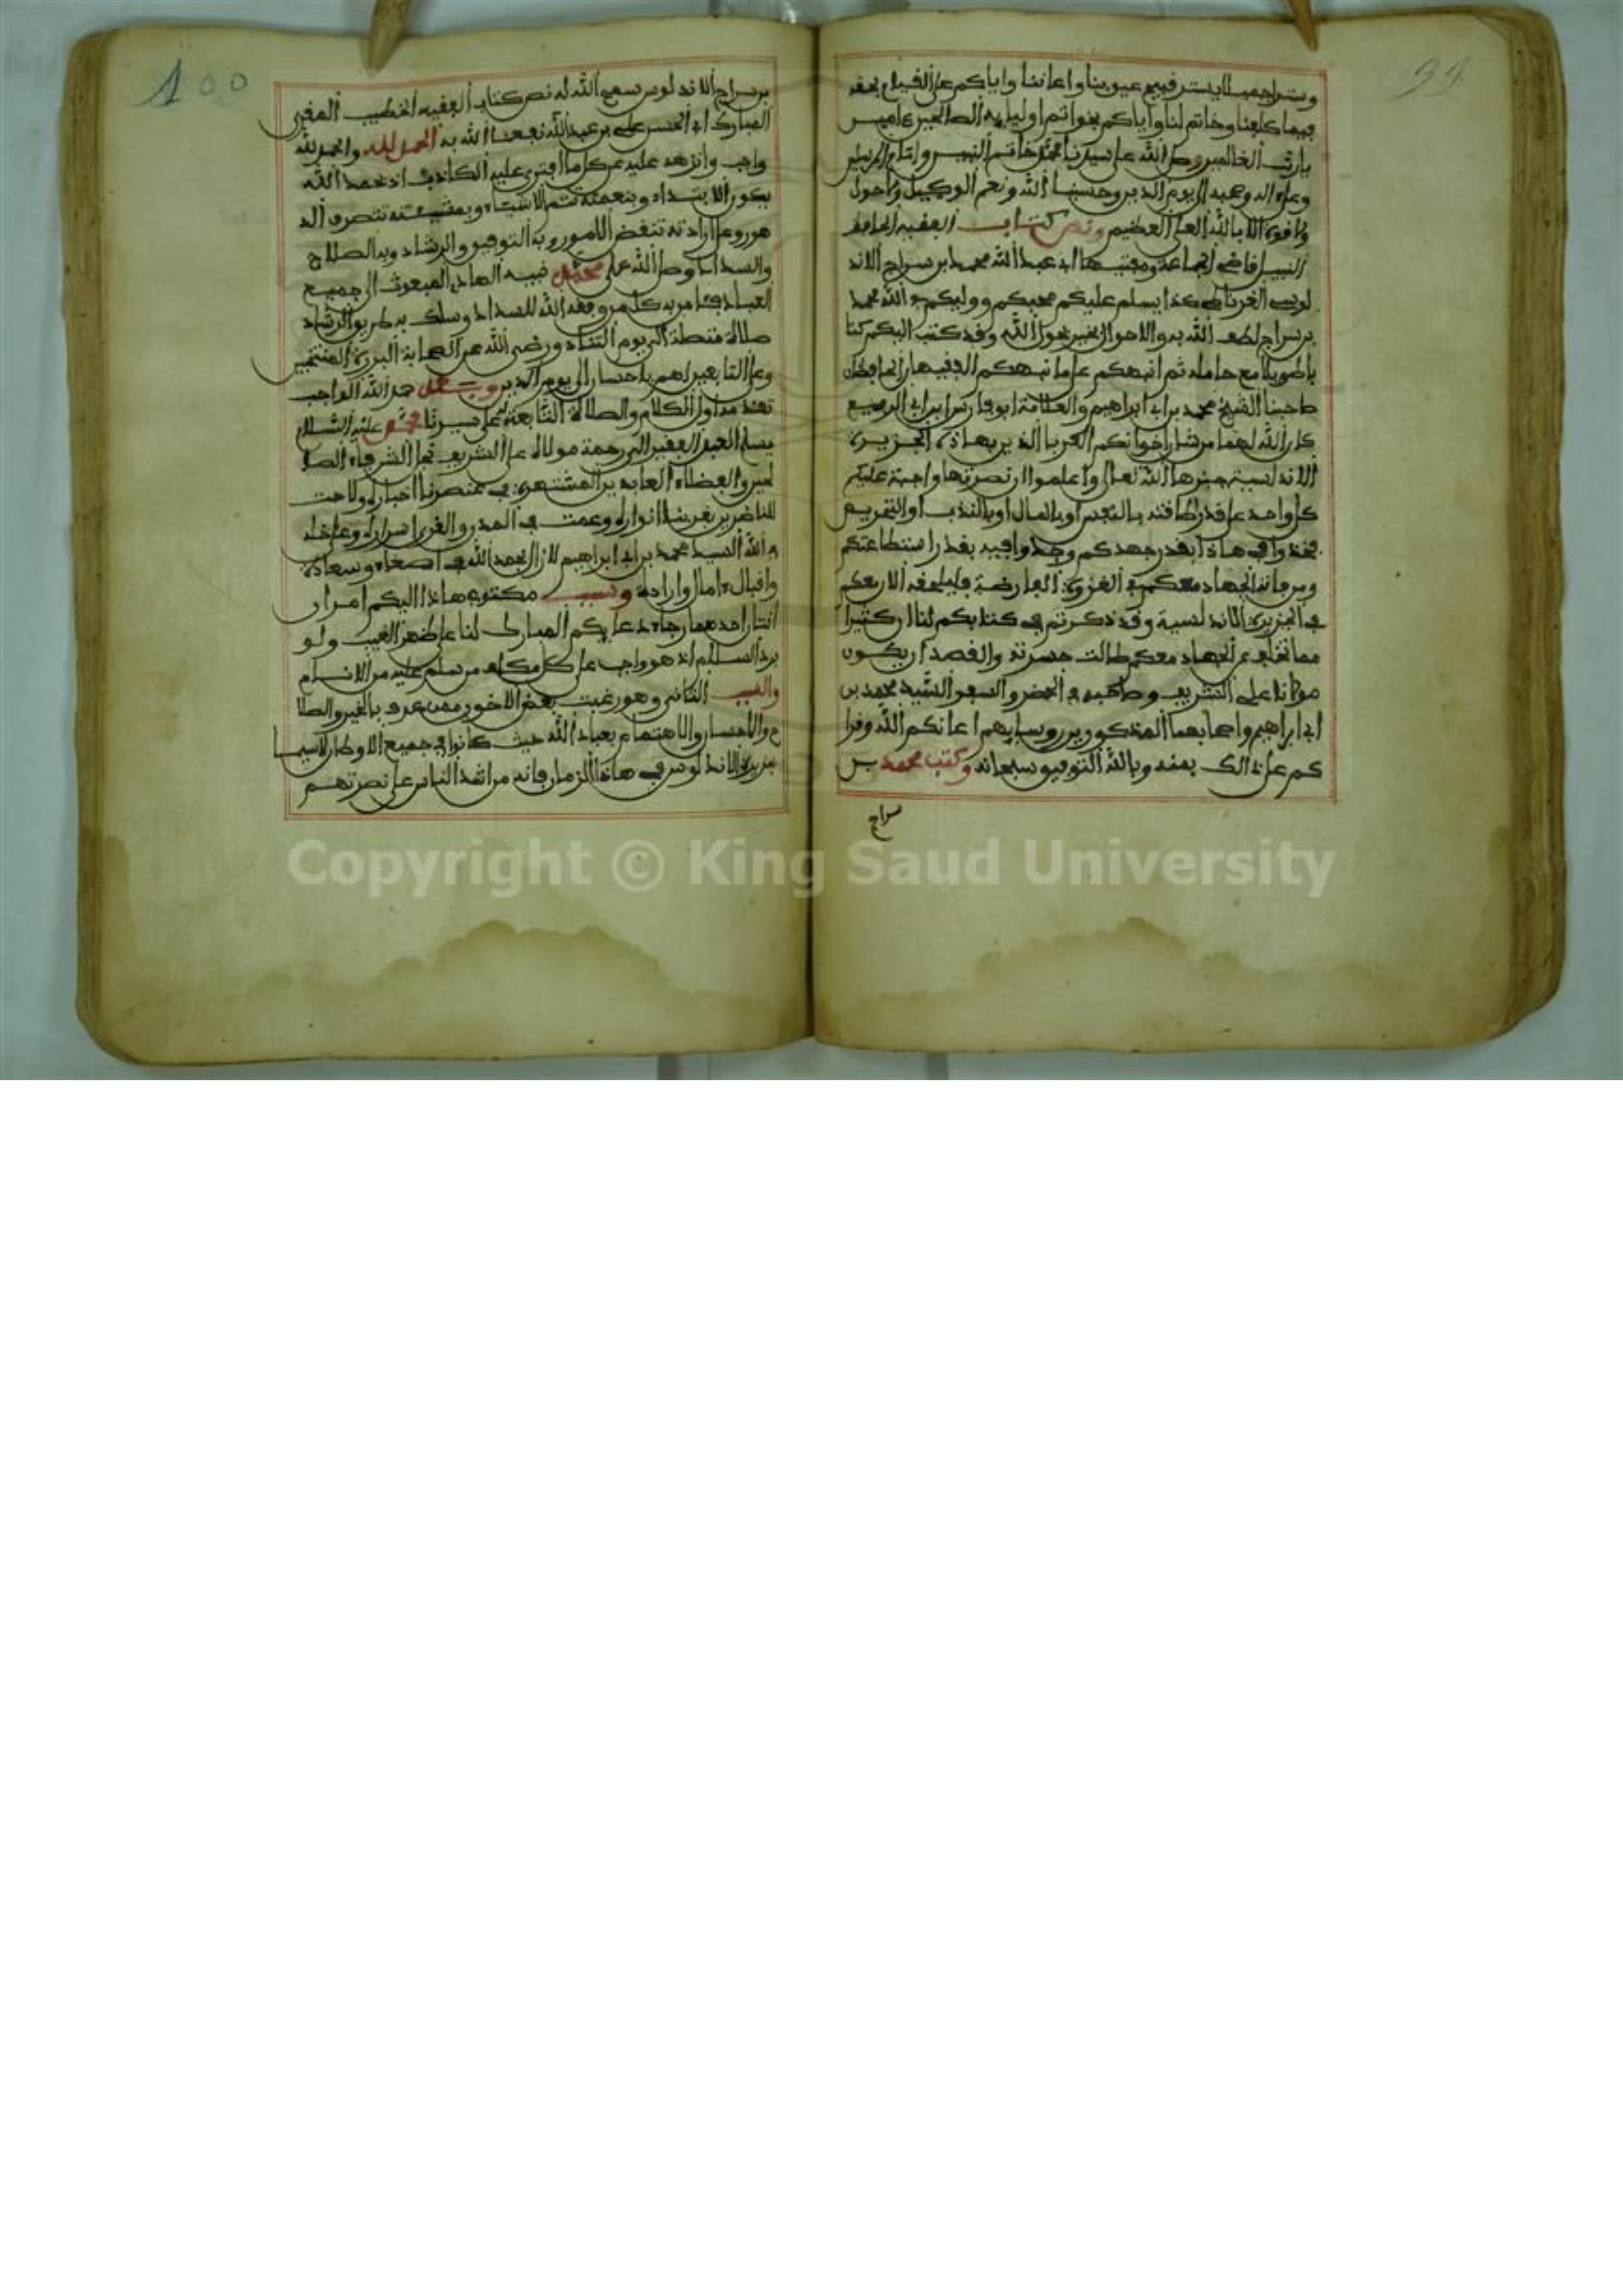 99
وسترا جميلا يستر فيهم عيوبنا واعاننا واياكم على القيام بحقه
فيما كلفنا وخاتم لنا واياكم بخواتم اوليايه الصالحين ءامين
يارب العالمين وصلى الله على سيدنا محمد خاتم النبيين وامام المرسلين
وعلى اله وصحبه الى يوم الدين وحسبنا الله ونعم الوكيل ولا حول
ولا قوة الا بالله العلي العظيم ونص كتاب الفقيه الحافظ
النبيل قاضي الجماعة ومفتيها ابي عبد الله محمد بن سراج الاند
لوسي الغرناطي كذا يسلم عليكم محبكم ووليكم في الله محمد
بن سراج لطف الله به والاحوال بخير بحول الله وقد كتب اليكم كتا
با طويلا مع حامله ثم انبهكم على ما نبهكم الفقيهان الحافظان
صاحبنا الشيخ محمد بن ابي ابراهيم والعلامة ابو فارس بن ابي الربيع
كان الله لهما من شان اخوانكم الغربا الذين بهاذه الجزيرة
الاندلسية جبرها الله تعالى واعلموا ان نصرتها واجبة على
كل واحد على قدر طاقته بالنفس او بالمال او بالندب او التحريم
فخذوا في هاذا بقدر جهدكم وجدوا فيه بقدر استطاعتكم
ومن فاته الجهاد معكم في الغزوة العارضة فليلحقه الان معكم
في الجزيرة الاندلسية وقد ذكرتم في كتابكم لنا ان كثيرا
مما تخلف عن الجهاد معكم طالت حسرته والقصد ان يكون
مولانا علي الشريف وصاحبه في الحضر والسفر السيد محمد بن
ابي ابراهيم واصحابهما المذكورين روسايهم اعانكم الله وقوا
كم على ذالك بمنه وبالله التوفيق سبحانه وكتب محمد بن
سراج
100
بن سراج الاندلوسي سمح الله له نص كتاب الفقيه الخطيب المقري
المبارك ابي الحسن علي بن عبد الله نفعنا الله به الحمد لله والحمد لله
واجب وانزهه عليه عن كل ما افترى عليه الكاذب اذ بحمد الله
يكون الابتداء وبنعمته تتم الاشياء وبمشيئته تتصرف الد
هور وعلى ارادته تنقض الامور وبه التوفيق والرشاد وبه الصلاح
والسداد وصلى الله على محمد نبيه الهادي المبعوث الى جميع
العباد من به كل من وفقه الله للسداد وسلك به طريق الرشاد
صلاة متصلة الى يوم التناد ورضي الله عن الصحابة البررة المنتخبين
وعلى التابعين لهم باحسان الى يوم الدين وبعد حمد الله الواجب
تقديمه اول الكلام والصلاة التابعة على سيدنا محمد عليه السلام
يسلم العبد الفقير الى رحمة مولاه على الشريف نجل الشرفاء الصا
لحين والفضلاء العابدين المشتهرة في عنصرنا اخباره ولاحت
للناضرين بغربنا انواره وعمت في المدن والقرى اسراره وعلى خله
في الله السيد محمد بن ابي ابراهيم لا زال بحمد الله في اصغاء وسعادة
واقبال ءامال وارادة وسبب مكتوبي هاذا اليكم امران
اثنان احدهما رجاء دعايكم المبارك لنا على ظهر الغيب ولو
برد السلام اذ هو واجب على كل مكلف من سلم عليه من الانام
والسبب الثاني وهو رغبت بعض الاخوان ممن عرف بالخير والصلا
ح والاحسان والاهتمام بعباد الله حيث كانوا في جميع الاوطان لاسيما
جزيرة الاندلوس في هاذا الزمان فانه من اشد الناس على نصرتهم
Copyright © King Saud University